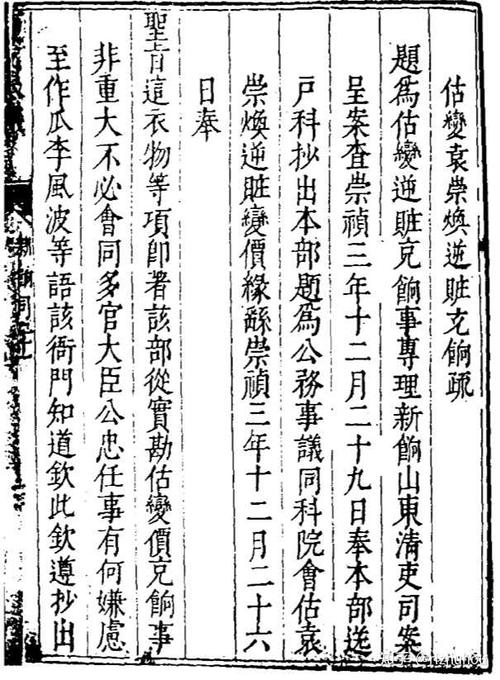 估變袁崇煥逆賍充餉疏
題爲估變逆賍充餉事專理新餉山東清吏司案
呈案查崇禎三年十二月二十九日奉本部送
戶科抄出本部題爲公務事議同科院會估袁
崇煥逆賍變價緣繇崇禎三年十二月二十六
日奉
聖旨這衣物等項卽著該部從實勘估變價充餉事
非重大不必會同多官大臣公忠任事有何嫌慮
至作瓜李風波等語該衙門知道欽此欽遵抄出